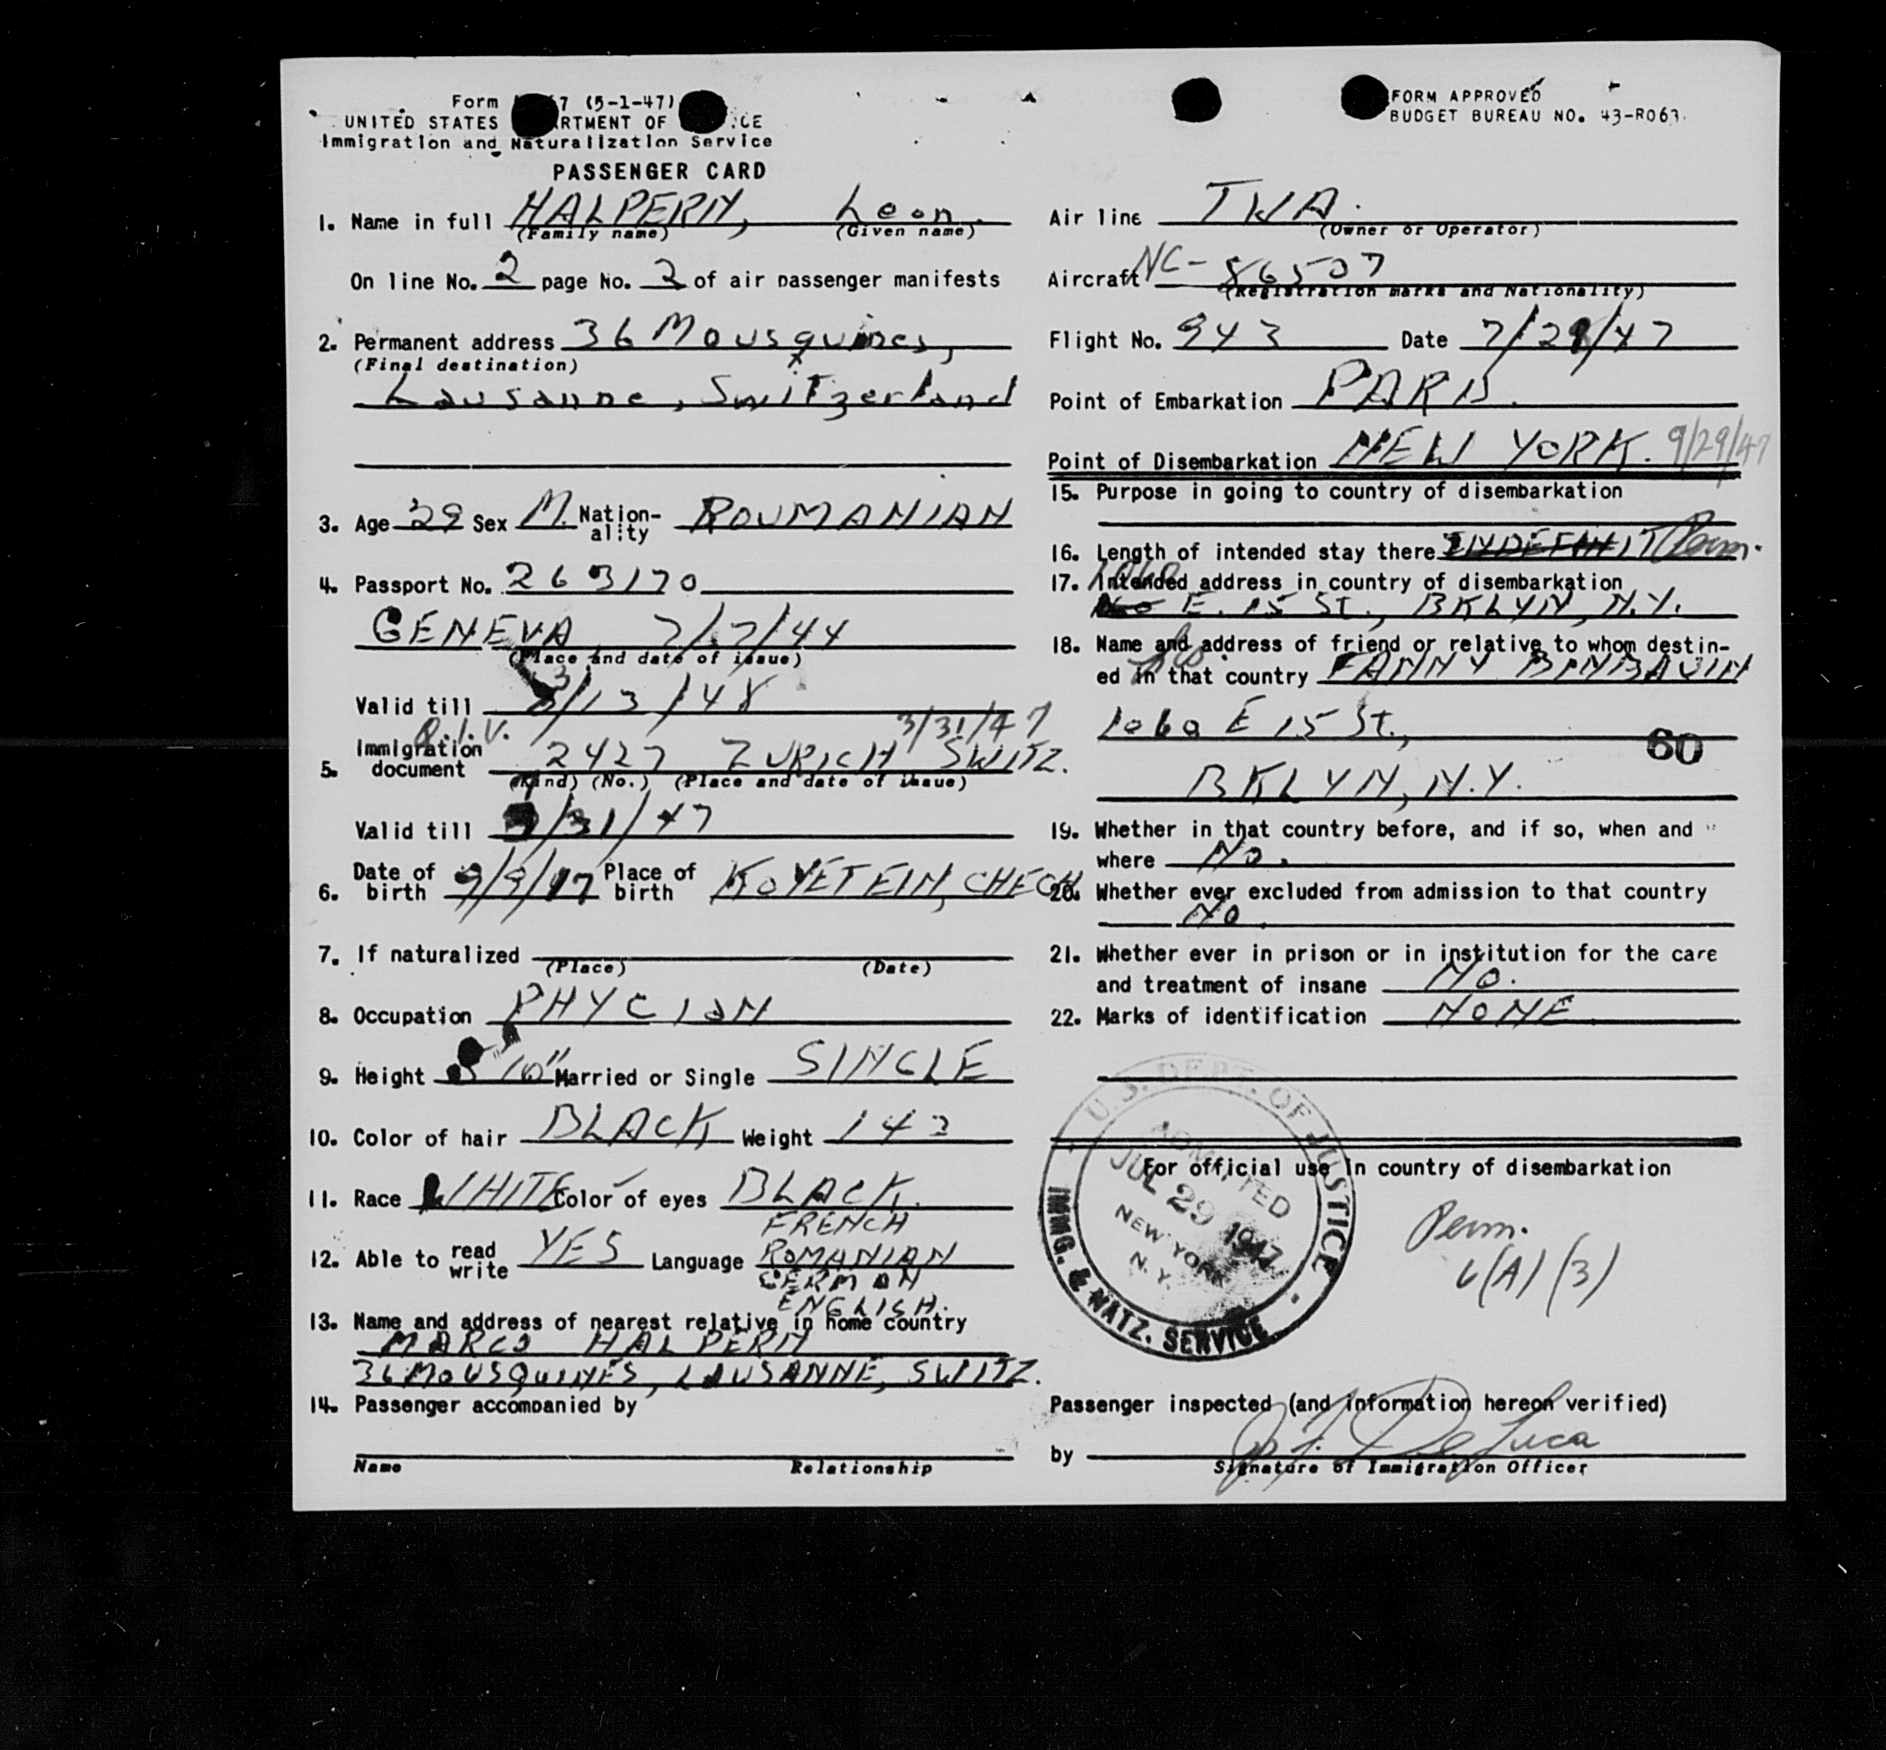 Form 7 (5-1-47)
UNITED STATES
Immigration and Naturalization Service
PASSENGER CARD
1. Name in full HALPERN, Leon.
(Family name) (Given name)
On line No. 2 page No. 2 of air passenger manifests
2. Permanent address 36 Mousquines,
(Final destination)
Lausanne, Switzerland
3. Age 29 Sex M. Nation-ality ROUMANIAN
4. Passport No. 263170
GENEVA 7/7/44
(Place and date of issue)
Valid till 3/13/48
Q.I.V. 3/31/47
5. Immigration document 2427 ZURICH SWITZ.
(Kind) (No.) (Place and date of issue)
Valid till /31/47
6. Date of birth 9/9/17 Place of birth KOYETEIN, CHECH
7. If naturalized
(Place) (Date)
8. Occupation PHYCIAN
9. Height 5'10" Married or Single SINGLE
10. Color of hair BLACK Weight 142
11. Race WHITE Color of eyes BLACK.
FRENCH
12. Able to read write YES Language ROMANIAN
GERMAN
ENGLISH.
13. Name and address of nearest relative in home country
MARCO HALPERN
36 MOUSQUINES, LAUSANNE, SWITZ.
14. Passenger accompanied by
Name Relationship
FORM APPROVED
BUDGET BUREAU NO. 43-R063.
Air line TWA.
(Owner or Operator)
Aircraft NC-86507
(Registration marks and Nationality)
Flight No. 943 Date 7/29/47
Point of Embarkation PARIS.
Point of Disembarkation NEW YORK. 9/29/47
15. Purpose in going to country of disembarkation
16. Length of intended stay there INDEFINIT Perm.
17. Intended address in country of disembarkation
1060 E. 15 ST., BKLYN, N.Y.
18. Name and address of friend or relative to whom destin-
ed in that country FANNY
1060 E 15 St.,
60
BKLYN, N.Y.
19. Whether in that country before, and if so, when and
where NO.
20. Whether ever excluded from admission to that country
NO.
21. Whether ever in prison or in institution for the care
and treatment of insane NO.
22. Marks of identification NONE
U.S. DEPT. OF JUSTICE
ADMITTED
JUL 29 1947
NEW YORK
N.Y.
IMMG. & NATZ. SERVICE
For official use in country of disembarkation
Perm.
6(A)(3)
Passenger inspected (and information hereon verified)
by De Luca
Signature of Immigration Officer